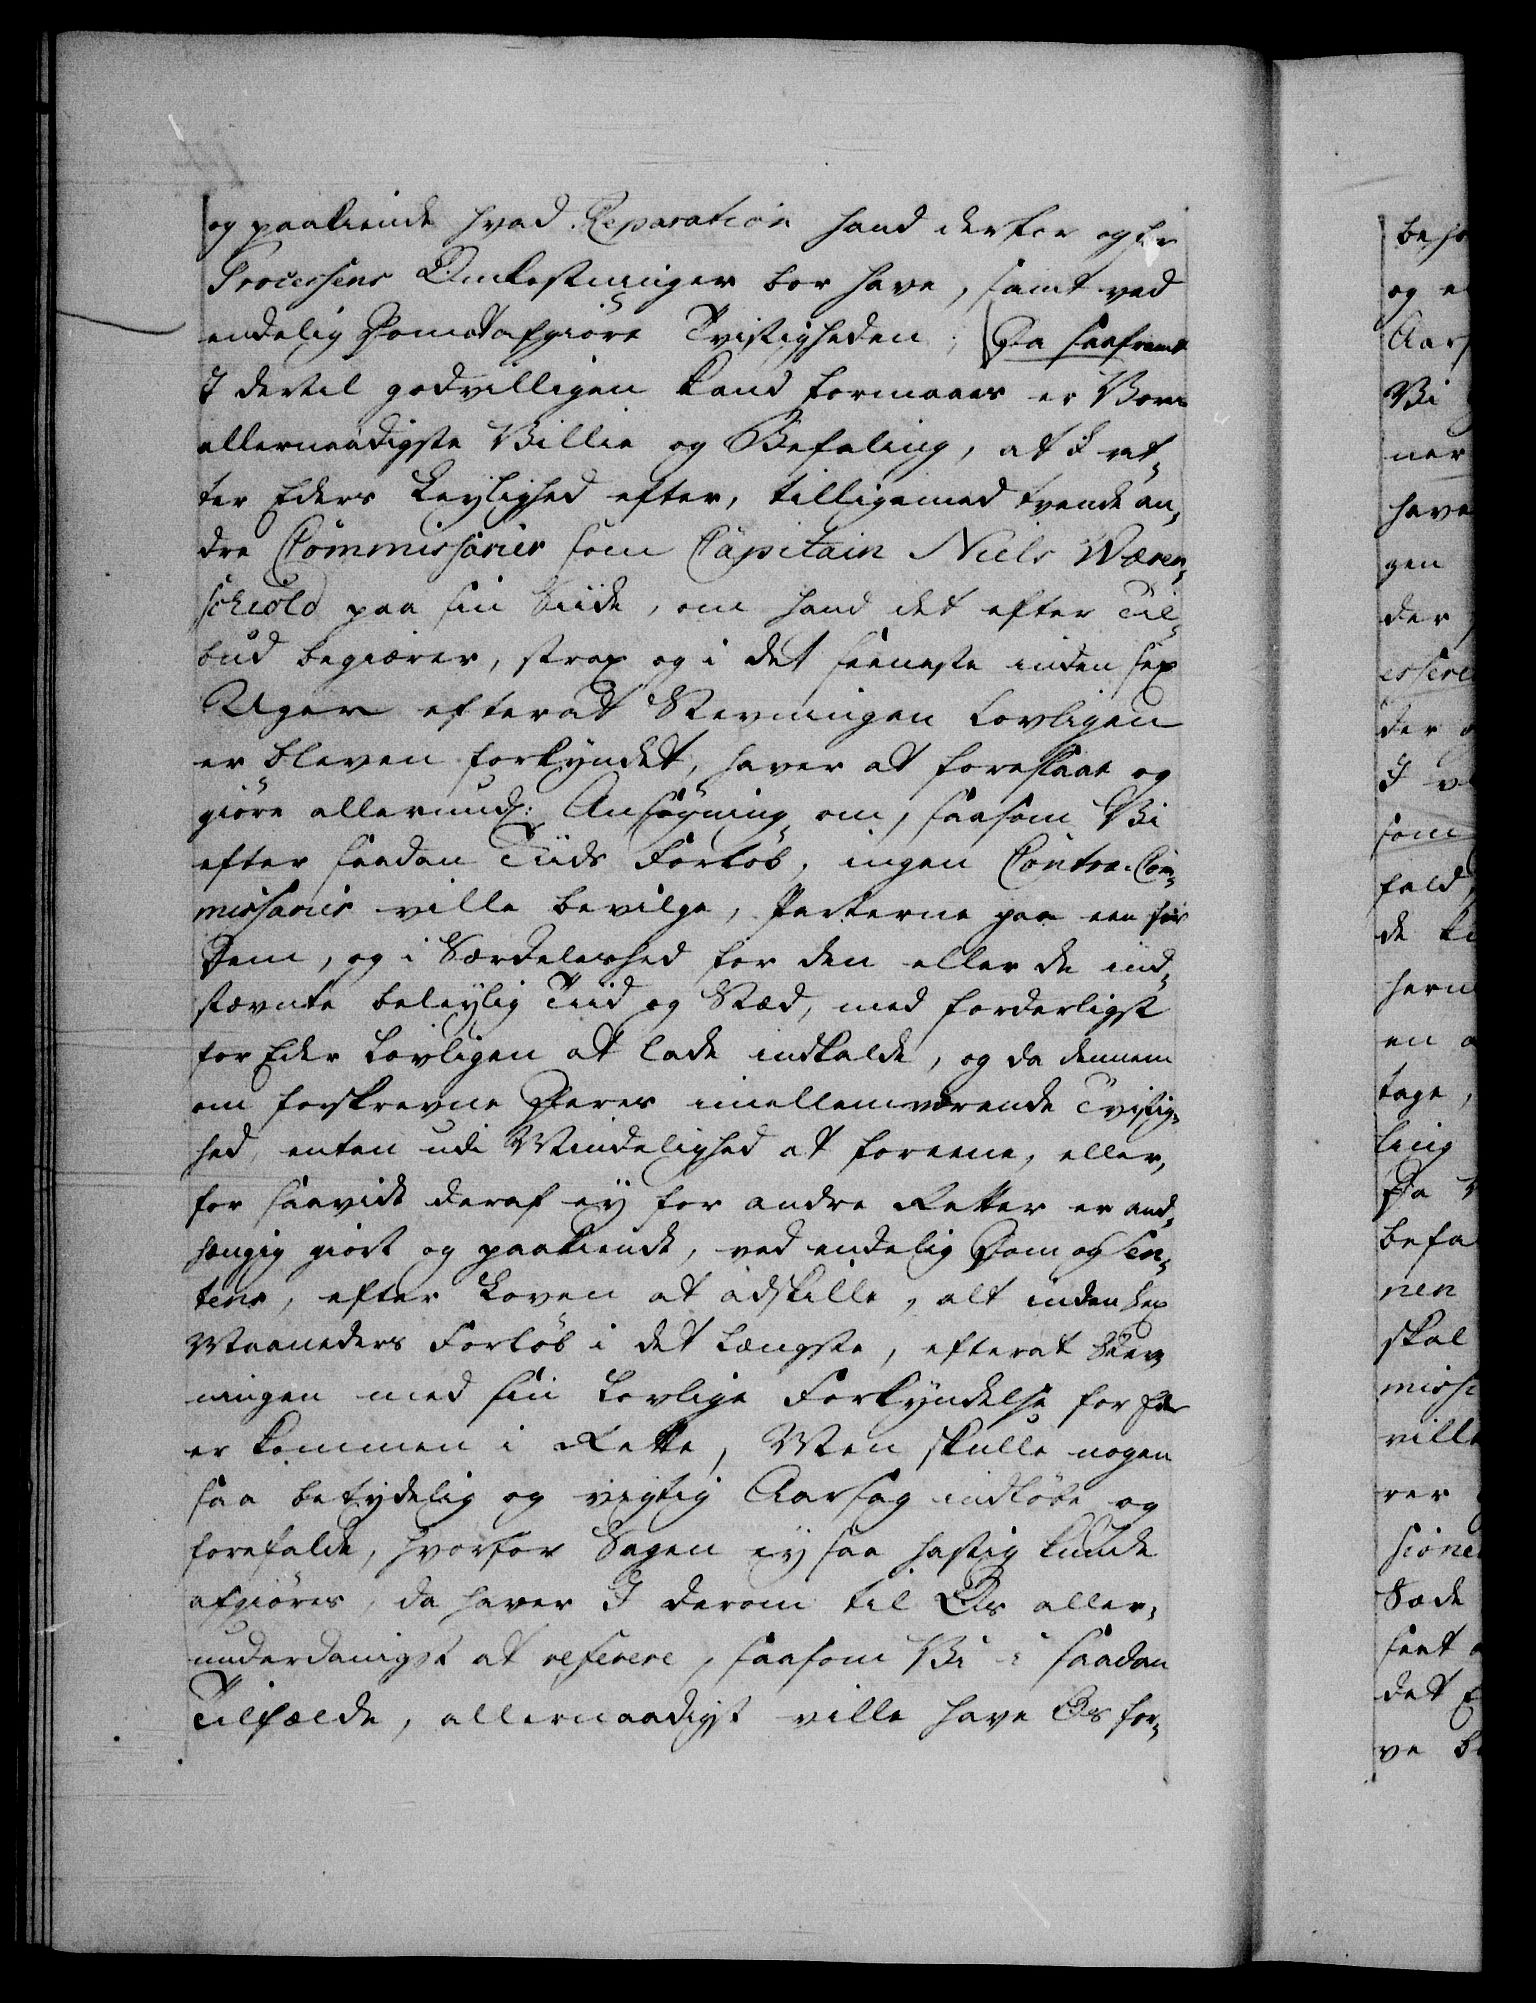 og paakiende hvad Reparation hand derfor og for
Processens Omkostninger bør have, samt ved
endelig Dom at afgiøre Tvistigheden; Da saafremt
I dertil godvilligen kand formaaes er Vores
allernaadigste Villie og Befaling, at I ret-
ter Eders Leylighed efter, tilligemed tvende an-
dre Commissarier som Capitain Niels Wæren-
schiold paa sin Siide, om hand det efter Til-
bud begiærer, strax og i det seeneste inden sex
Uger efterat Stevningen lovligen
er bleven forkyndet, haver at foreslaae og
giøre allerund: Ansøgning om, saasom Vi
efter saadan Tiids Forløb, ingen Contra-Com-
missarier ville bevilge, Parterne paa een for
Dem, og i Særdeleshed for den eller de ind-
stævnte beleylig Tiid og Stæd, med forderligst
for Eder lovligen at lade indkalde, og da dennem
om forskrevne Deres imellemværende Tvistig-
hed, enten udi Mindelighed at foreene, eller,
for saavidt deraf ey for andre Retter er and-
hængig giort og paakiendt, ved endelig Dom og Sen-
tens, efter Loven at adskille, alt inden sex
Maaneders Forløb i det længste, efterat Stev-
ningen med sin lovlige Forkyndelse for Eder
er kommen i Rette, Men skulle nogen
saa betydelig og vigtig Aarsag indløbe og
forefalde, hvorfor Sagen ey saa hastig kunde
afgiøres, da haver I derom til Os aller-
underdanigst at referere, saasom Vi i saadan
Tilfælde, allernaadigst ville have Os for-
beho
og e
Aars
Vi
ner
have
gen
der
essere
der
I v
som
fald
de
herm
en
tage,
ling
Da
befa
nen
skal
missa
ville
rer
sione
Sede
sent
det E
ve